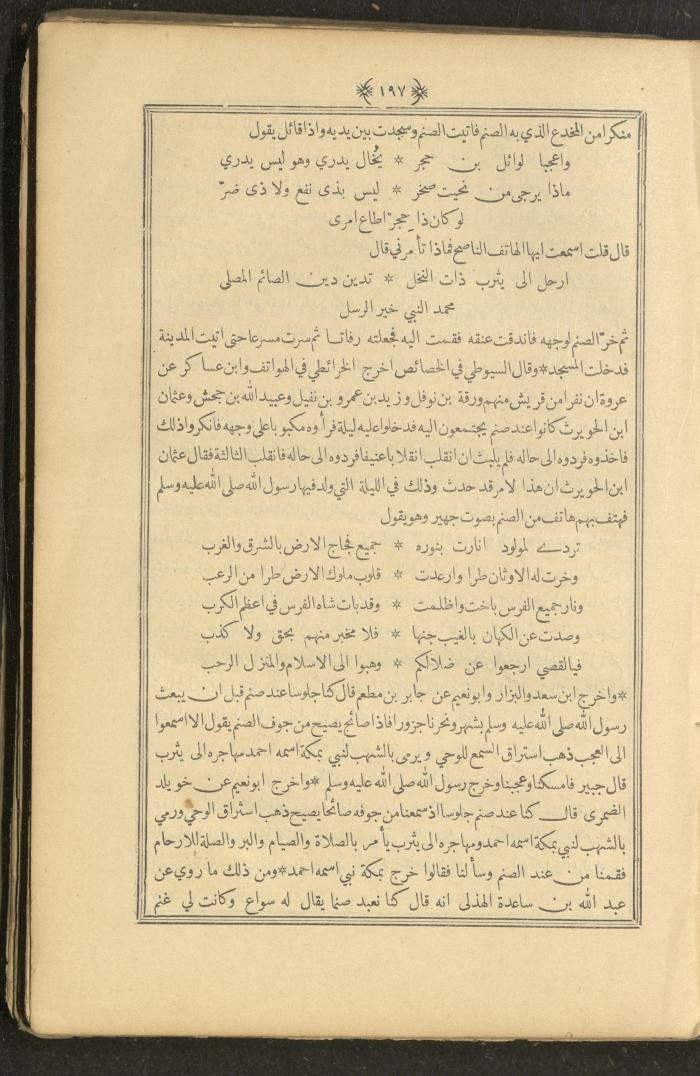 ١٩٧
منكرا من المخدع الذي به الصنم فاتيت الصنم وسجدت بين يديه واذا قائل يقول
واعجبا لوائل بن حجر * يخال يدري وهو ليس يدري
ماذا يرجى من نحيت صخر * ليس بذى نفع ولا ذى ضرّ
لو كان ذا حجر اطاع امرى
قال قلت اسمعت ايها الهاتف الناصح فماذا تأمرني قال
ارحل الى يثرب ذات النخل * تدين دين الصائم المصلى
محمد النبي خير الرسل
ثم خرّ الصنم لوجهه فاندقت عنقه فقمت اليه فجعلته رفاتا ثم سرت مسرعا حتى اتيت المدينة
فدخلت المسجد * وقال السيوطي في الخصائص اخرج الخرائطي في الهواتف وابن عساكر عن
عروة ان نفرا من قريش منهم ورقة بن نوفل وزيد بن عمرو بن نفيل وعبيد الله بن جحش وعثمان
ابن الحويرث كانوا عند صنم يجتمعون اليه فدخلوا عليه ليلة فرأوه مكبوبا على وجهه فانكروا ذلك
فاخذوه فردوه الى حاله فلم يلبث ان انقلب انقلابا عنيفا فردوه الى حاله فانقلب الثالثة فقال عثمان
ابن الحويرث ان هذا لامر قد حدث وذلك في الليلة التي ولد فيها رسول الله صلى الله عليه وسلم
فهتف بهم هاتف من الصنم بصوت جهير وهو يقول
تردے لمولود انارت بنوره * جميع فجاج الارض بالشرق والغرب
وخرت له الاوثان طرا وارعدت * قلوب ملوك الارض طرا من الرعب
ونار جميع الفرس باخت واظلمت * وقد بات شاه الفرس في اعظم الكرب
وصدت عن الكهان بالغيب جنها * فلا مخبر منهم بحق ولا كذب
فيالقصي ارجعوا عن ضلالكم * وهبوا الى الاسلام والمنزل الرحب
* واخرج ابن سعد والبزار وابو نعيم عن جابر بن مطعم قال كنا جلوسا عند صنم قبل ان يبعث
رسول الله صلى الله عليه وسلم بشهر ونحرنا جزورا فاذا صائح يصيح من جوف الصنم يقول الا اسمعوا
الى العجب ذهب استراق السمع للوحي ويرمى بالشهب لنبي بمكة اسمه احمد مهاجره الى يثرب
قال جبير فامسكنا وعجبنا وخرج رسول الله صلى الله عليه وسلم * واخرج ابو نعيم عن خويلد
الضمرى قال كنا عند صنم جلوسا اذ سمعنا من جوفه صائحا يصيح ذهب استراق الوحي ورمي
بالشهب لنبي بمكة اسمه احمد ومهاجره الى يثرب يأمر بالصلاة والصيام والبر والصلة للارحام
فقمنا من عند الصنم وسألنا فقالوا خرج بمكة نبي اسمه احمد * ومن ذلك ما روي عن
عبد الله بن ساعدة الهذلى انه قال كنا نعبد صنما يقال له سواع وكانت لي غنم